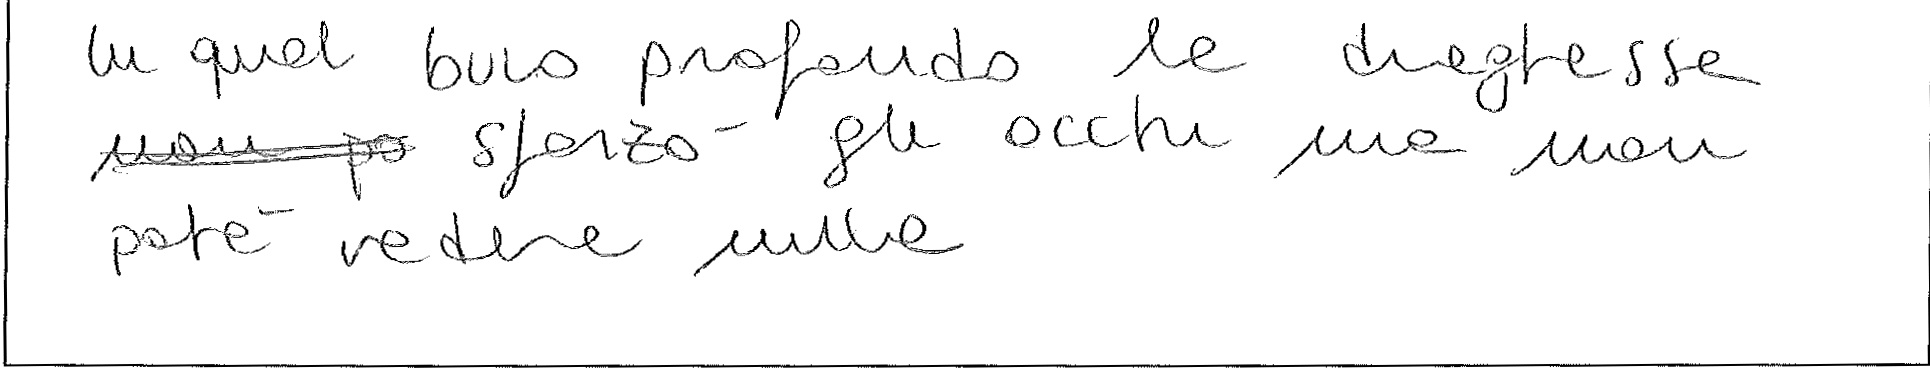 In quel buio profondo la draghessa
non po sforzò gli occhi ma non
poté vedere nulla